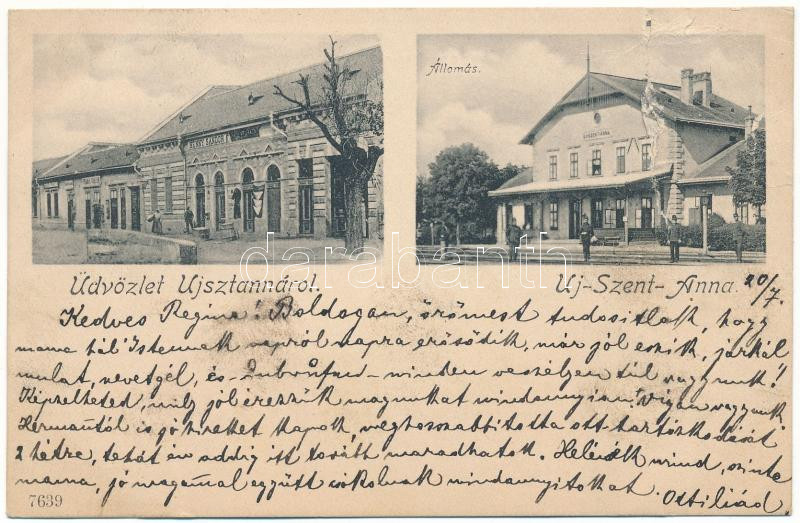 Állomás.
Üdvözlet Ujsztannáról.
Uj-Szent-Anna.
20/7.
Kedves Regina! Boldogan, örömest tudositlak, hogy
mama hál' Istennek napról napra erősödik, már jól eszik, járkál
mulat, nevetgél, és minden veszélyen túl vagyunk!
Képzelheted, mily jól érezzük magunkat mindannyian. Vigan vagyunk
Hermantól is jó hireket kapok, meghosszabbitotta ott tartózkodását
2 hétre, tehát én addig itt tovább maradhatok. Helénék mind, szinte
mama, jó magammal együtt csókolnak mindannyitokat. Ottiliád.
7639
darabanth